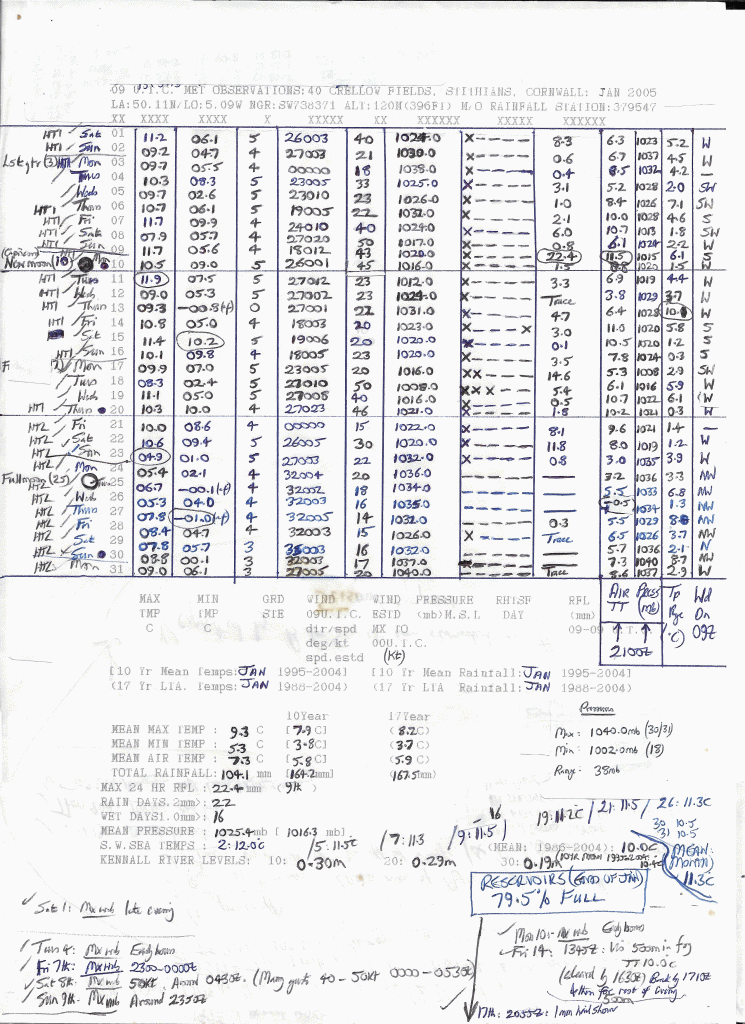 09 U.T.C. MET OBSERVATIONS:40 CRELLOW FIELDS, STITHIANS, CORNWALL: JAN 2005
LA:50.11N/LO:5.09W NGR:SW738371 ALT:120M(396FT) M/O RAINFALL STATION:379547
XX XXXX XXXX X XXXXX XX XXXXXX XXXXX XXXXXX
HT1/ Sat 01 11.2 06.1 5 26003 40 1024.0 X---- 8.3 6.3 1023 5.2 W
HT1/ Sun 02 09.2 04.7 4 27003 21 1030.0 X---- 0.6 6.7 1037 4.5 W
Mon 03 09.7 05.5 4 00000 18 1038.0 X---- 0.4 8.5 1032 4.2 —
/ Tues 04 10.3 08.3 5 23005 33 1025.0 X---- 3.1 5.2 1028 2.0 SW
/ Weds 05 09.7 02.6 5 23010 23 1026.0 X---- 1.0 8.4 1026 7.1 SW
HT1/ Thurs 06 10.7 06.1 5 19005 22 1032.0 X---- 2.1 10.0 1028 4.6 S
HT1/ Fri 07 11.7 09.9 4 24010 40 1024.0 X---- 6.0 10.7 1013 1.8 SW
HT1/ Sat 08 07.9 05.7 4 27020 50 1017.0 X---- 0.8 6.1 1024 2.2 W
/ Sun 09 11.7 05.6 4 18012 43 1020.0 X---- 22.4 11.5 1015 6.1 S
New moon (10) Mon 10 10.5 09.0 5 26001 45 1016.0 X---- 1.5 8.8 1020 1.5 W
HT1/ Tues 11 11.9 07.5 5 27012 23 1012.0 X---- 3.3 6.9 1019 4.4 W
HT1/ Weds 12 09.0 05.3 5 27002 23 1024.0 X---- Trace 3.8 1029 3.7 W
HT1/ Thurs 13 09.3 —00.8(4) 0 27001 22 1031.0 X---- 4.7 6.4 1028 W
HT1/ Fri 14 10.8 05.0 4 18003 20 1023.0 X---X 3.0 11.0 1020 5.8 S
/ Sat 15 11.4 10.2 5 19006 20 1020.0 X---- 0.1 10.5 1520 1.2 S
HT1/ Sun 16 10.1 09.8 4 18005 23 1020.0 X---- 3.5 7.8 1024 0.3 S
/ Mon 17 09.9 07.0 5 23005 20 1016.0 XX--- 14.6 5.3 1008 2.9 SW
/ Tues 18 08.3 02.4 5 27010 50 1008.0 XXX-- 5.4 6.1 1016 5.9 W
/ Weds 19 11.1 05.0 5 27008 40 1016.0 X---- 0.5 10.7 1022 6.1 W
HT1/ Thurs 20 10.3 10.0 4 27023 46 1021.0 X---- 1.8 10.2 1021 0.3 W
HT2/ Fri 21 10.0 08.6 4 00000 15 1022.0 X---- 8.1 9.6 1021 1.4 —
HT2/ Sat 22 10.6 09.4 5 26005 30 1020.0 X---- 11.8 8.0 1019 1.2 W
HT2/ Sun 23 04.9 01.0 5 27003 22 1032.0 X---- 0.8 3.0 1035 3.9 W
HT2/ Mon 24 05.4 02.1 4 32004 20 1036.0 ----- 3.2 1036 3.3 NW
Full moon (25) 25 06.7 —00.1(4) 4 32002 18 1034.0 ----- 5.5 1033 6.8 NW
HT2/ Weds 26 05.3 04.0 4 32003 16 1035.0 ----- —0.5 1034 1.3 NW
HT2/ Thurs 27 07.8 —01.0(4) 4 32005 14 1032.0 ----- 0.3 5.5 1029 8.8 NW
HT2/ Fri 28 08.4 04.7 4 32003 15 1026.0 X---- Trace 6.5 1026 3.7 NW
HT2/ Sat 29 07.8 05.7 3 35003 16 1032.0 ----- 5.7 1036 2.1 N
HT2/ Sun 30 08.8 00.1 3 32003 17 1037.0 ----- 7.3 1040 8.7 NW
HT2/ Mon 31 09.0 06.1 3 27005 20 1040.0 ----- Trace 8.6 1037 2.9 W
MAX MIN GRD WIND WIND PRESSURE RHTSF RFL AIR PRESS Tp Wd
TMP TMP STE 09U.T.C. ESTD (mb)M.S.L DAY (mm) TT (mb) Dn
C C dir/spd MX TO 09-09 U.T.C. (°C) 09Z
deg/kt 00U.T.C.
spd.estd (kt) 2100Z
[10 Yr Mean Temps:JAN 1995-2004] [10 Yr Mean Rainfall:JAN 1995-2004]
(17 Yr LTA. Temps:JAN 1988-2004) (17 Yr LTA Rainfall:JAN 1988-2004)
Pressure
10Year 17Year
MEAN MAX TEMP : 9.3 C [7.9 C] (8.2C) Max: 1040.0mb (30/31)
MEAN MIN TEMP : 5.3 C [3.8 C] (3.7C) Min: 1002.0mb (18)
MEAN AIR TEMP : 7.3 C [5.8 C] (5.9C)
TOTAL RAINFALL: 104.1 mm [164.2mm] (167.5mm) Range: 38mb
MAX 24 HR RFL : 22.4 mm (9th)
RAIN DAYS.2mm): 22
WET DAYS1.0mm): 16
MEAN PRESSURE : 1025.4mb [ 1016.3 mb]
S.W.SEA TEMPS : 2: 12.0c /5: 11.5c /7: 11.3 /9: 11.5 /16 19: 11.2C /21: 11.5 /26: 11.3C
30 10.5
31 10.5
(MEAN: (1986-2004): 10.0C
MEAN: (MONTH) 11.3C
KENNALL RIVER LEVELS: 10: 0.30m 20: 0.29m 30: 0.19m
RESERVOIRS (END OF JAN)
79.5% FULL
✓ Sat 1: Mx wnb late evening
/ Tues 4: Mx wnb Early hours
/ Fri 7th: Mx wnb 2300-0000Z
✓ Sat 8th: Mx wnb 50KT. Around 0430Z. (Many gusts 40-50KT 0000-0530Z)
✓ Sun 9th: Mx wnb Around 2350Z
✓ Mon 10: Mx wnb Early hours
✓ Fri 14: 1345Z: Vis 500m in fog
TT 10.0°C
(cleared by 1630Z) Back by 1710Z
rest of evening
17th: 2055Z: 1mm hail show